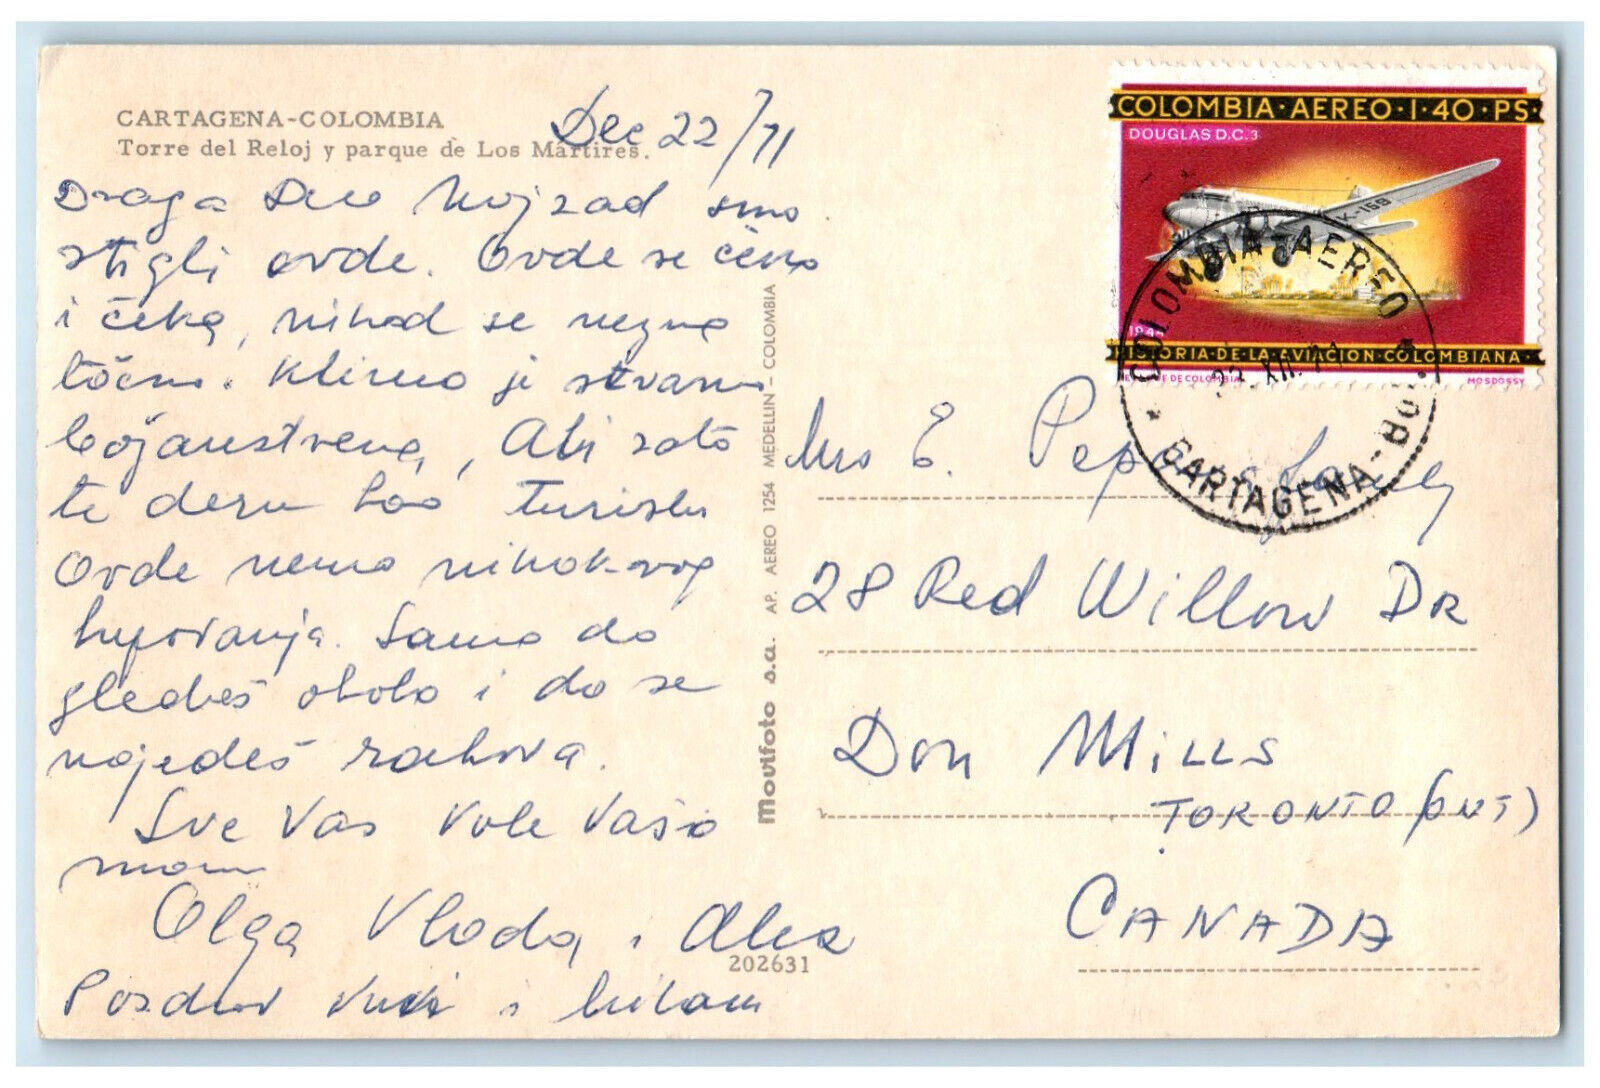 CARTAGENA-COLOMBIA
Torre del Reloj y parque de Los Mártires.
Dec 22/71
Draga Deco Najzad smo
stigli ovde. Ovde se čeka
i čeka, nikad se nezna
točno. Klima je stvarno
božanstvena, Ali zato
te deru kao Turistu
Ovde nema nikakvog
kupovanja. Samo da
gledaš okolo i da se
najedeš rakova.
Sve Vas Vole Vaša
mama
Olga Vlada i Alex
Pozdrav Vuki i
202631
movifoto s.a. AP. AEREO 1254 MEDELLIN - COLOMBIA
COLOMBIA·AEREO·1·40·PS·
DOUGLAS D.C.3
K-159
HISTORIA·DE·LA·AVIACION·COLOMBIANA·
DE COLOMBIA
MOSDOSSY
COLOMBIA-AEREO
XII
CARTAGENA-BOL
Mrs E. & Family
28 Red Willow DR
Don Mills
TORONTO (ONT)
CANADA